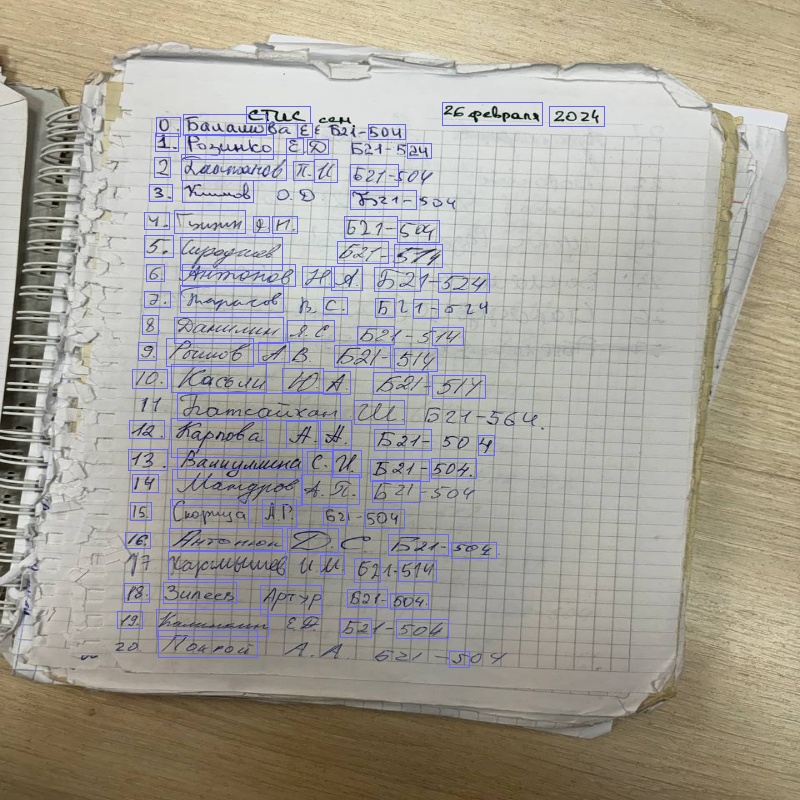 СТИС сем 26 февраля 2024
0. Балашова Е Е Б21-504
1. Розинко Е Д Б21-524
2 П.И Б21-504
3. Климов О.Д Б21-504
4. Н. Б21-504
5. Б21-514
6. Антонов Н А Б21-524
7. Тарасов В.С. Б21-524
8 Данилин Я.С Б21-514
9. А В. Б21-514
10. Касьли Ю А. Б21-514
11 Батсайхан Ш. Б21-564.
12. Карпова А. А. Б21-504
13. С. И. Б21-504.
14 Мандров А.П. Б21-504
15. Скорица А.Р. Б21-504
16. Антонюк Д.С. Б21-504.
17 Хармышев И И Б21-514
18. Зилеев Артур Б21-504.
19. Калинкин Е.Д. Б21-504
20 А.А. Б21-504